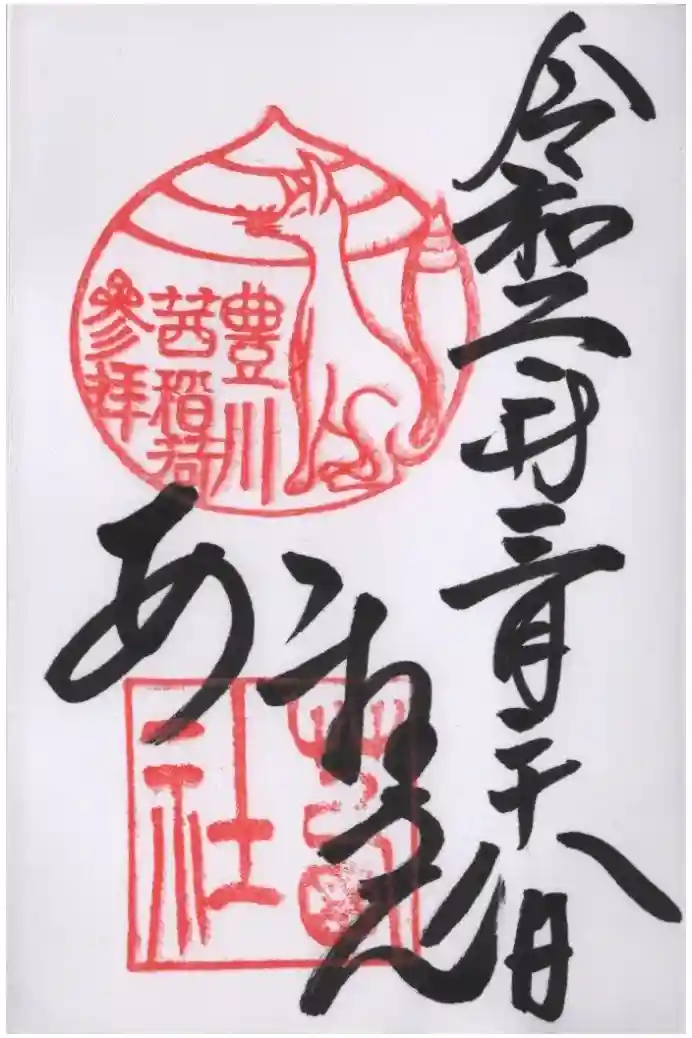 令和二年三月二十八日
豊川
茜稲荷
參拝
茜社